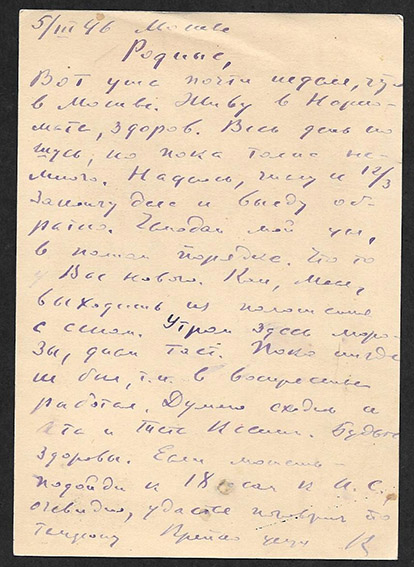 5/III 46 Москва
Родные,
Вот уже почти неделя, что
в Москве. Живу в
здоров. Весь день но
шусь, но пока толку не
много. Надеюсь, числу к 12/3
закончу дела и выеду об
ратно. Чемодан мой цел,
в полном порядке. Что то
у Вас нового. Как,
выходишь из положения
с сеном. Утром здесь моро
зы, днем тает. Пока нигде
не был, т.к. в воскресенье
работал. Думаю сходить к
и Тете Ксении. Будьте
здоровы. Если можешь -
подойди к 18 час к И.С.,
очевидно, удастся поговорить по
телефону Крепко целую